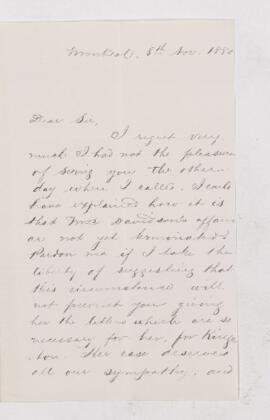 Montreal, 8th Nov. 1880
Dear Sir,
I regret very
much I had not the pleasure
of seeing you the other
day when I called. I could
have explained how it is
that Mrs Davidson's affairs
are not yet terminated.
Pardon me if I take the
liberty of suggesting that
this circumstance will
not prevent your giving
her the letters which are so
necessary for her, for Kings
ton. Her case deserves
all our sympathy, and